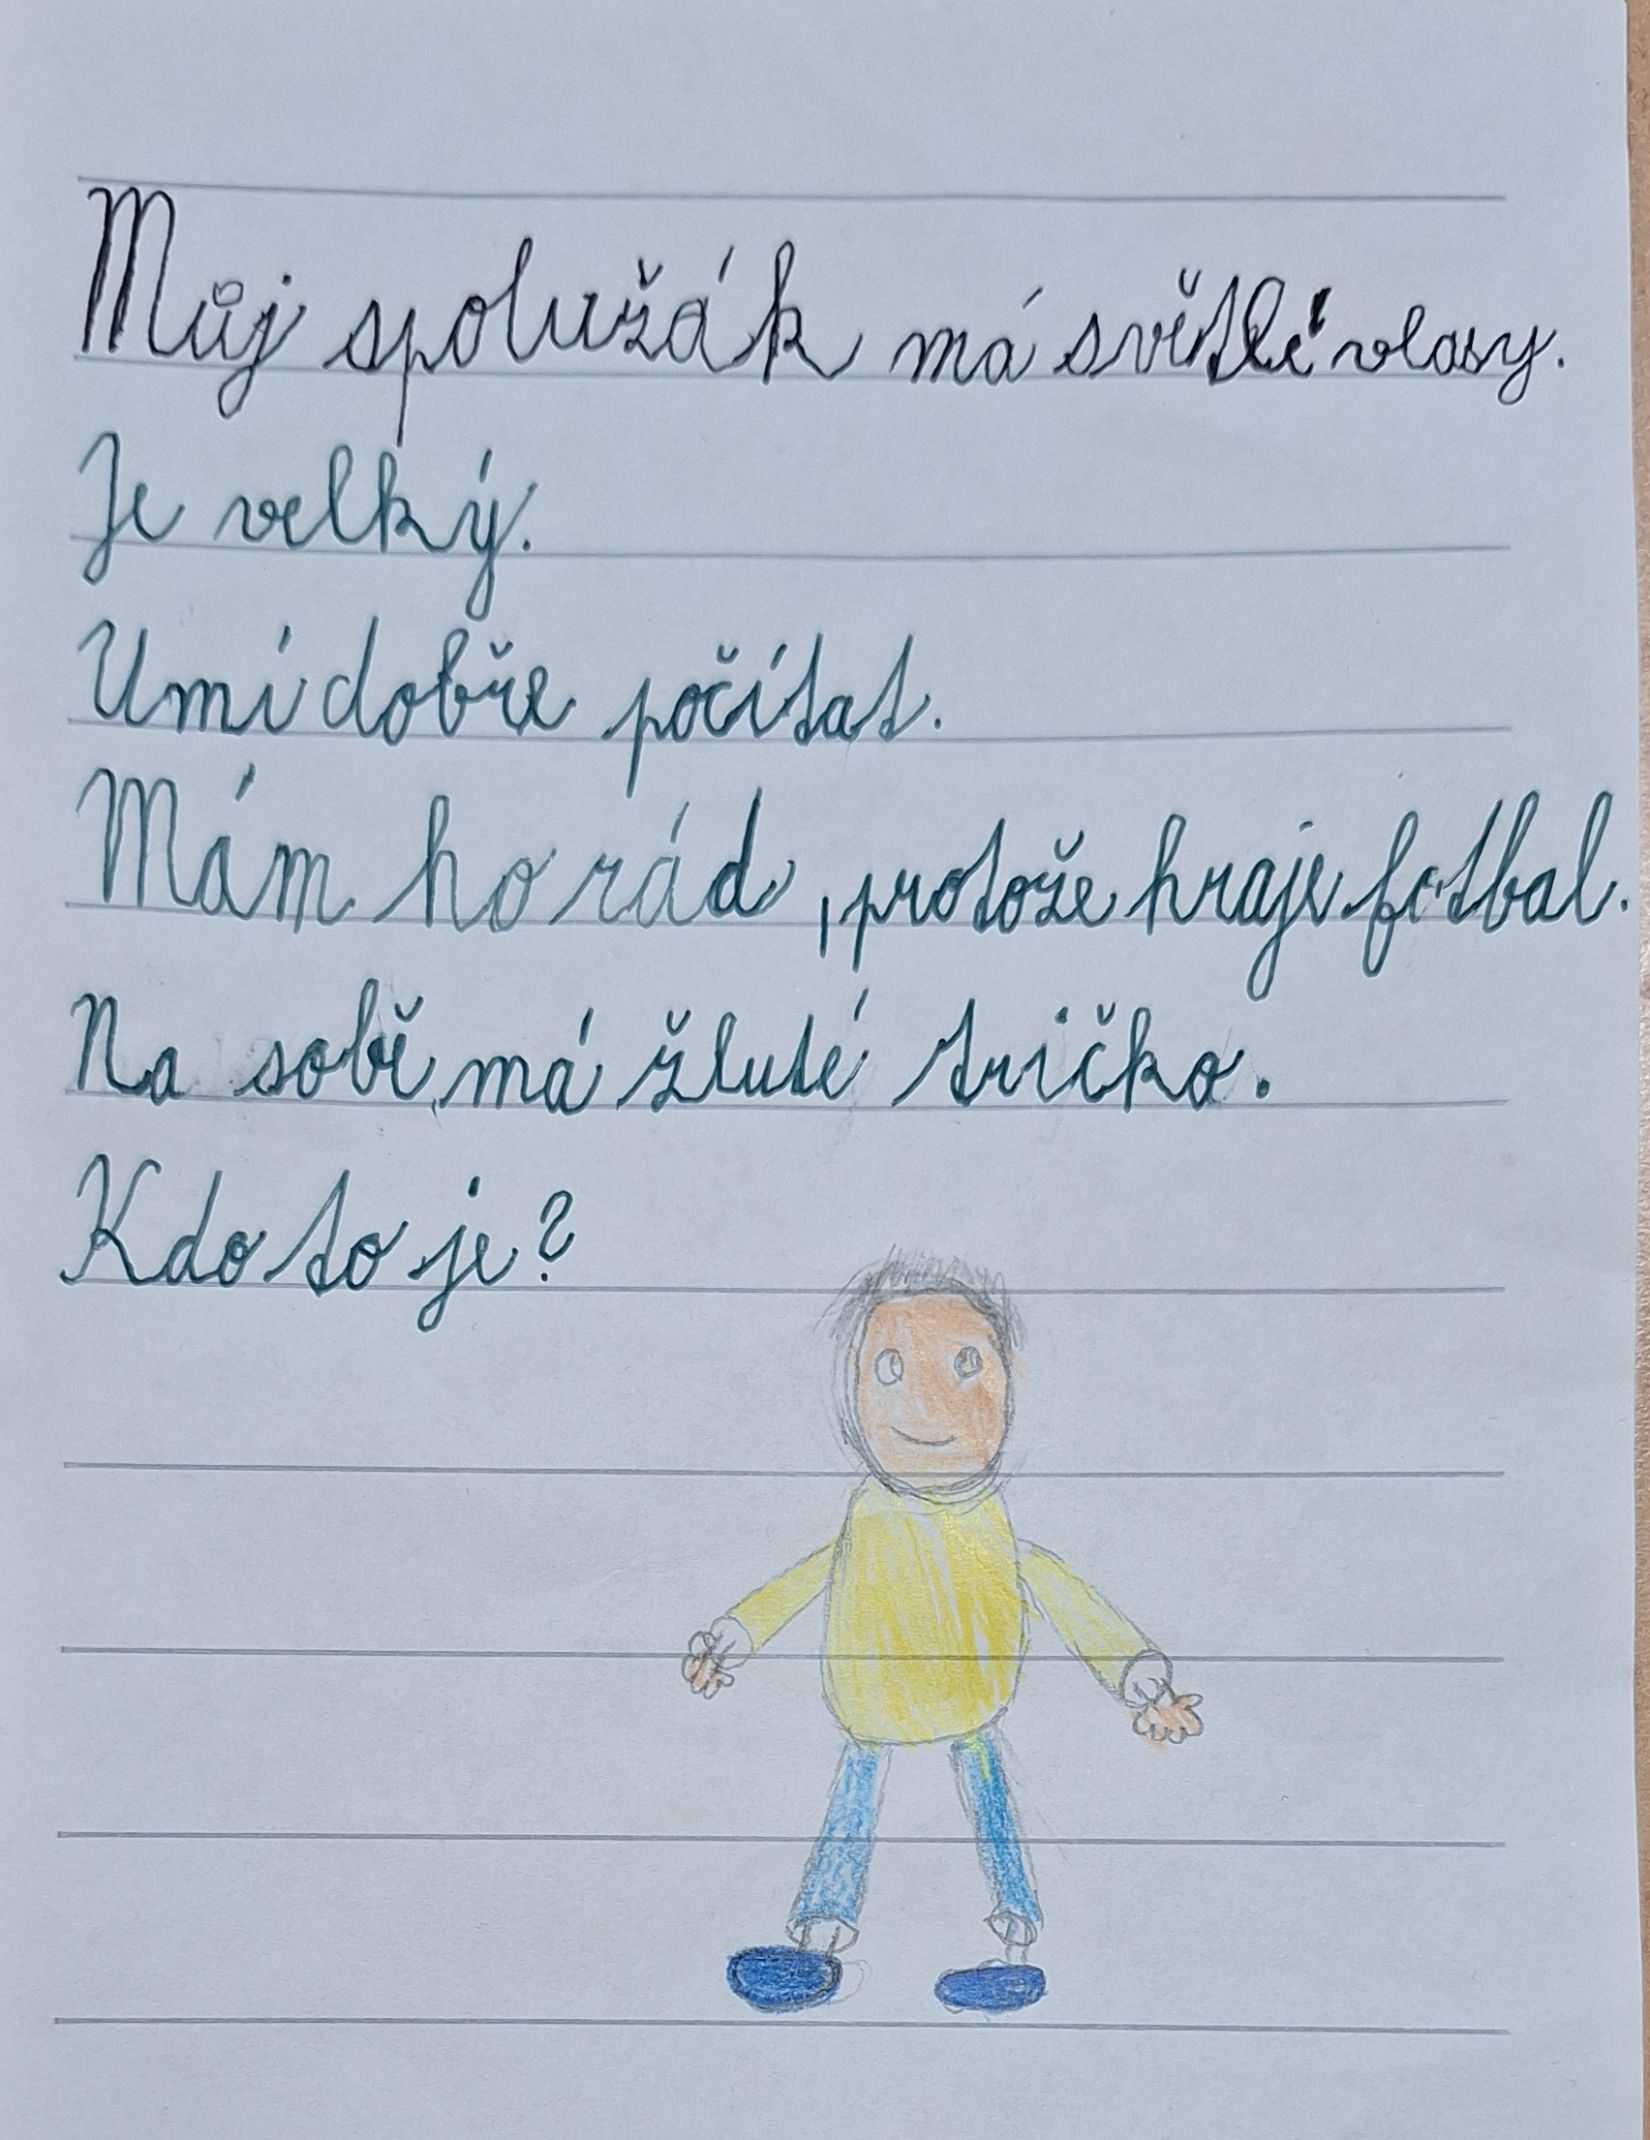 Můj spolužák má světlé vlasy.
Je velký.
Umí dobře počítat.
Mám ho rád, protože hraje fotbal.
Na sobě má žluté tričko.
Kdo to je?